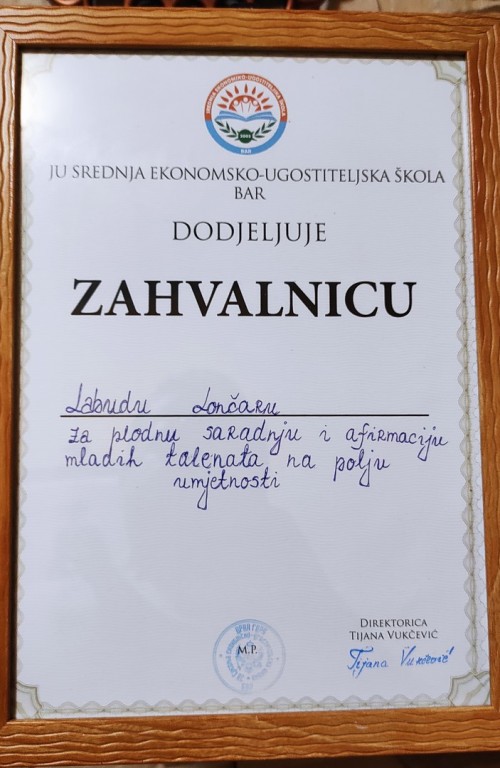 SREDNJA EKONOMSKO-UGOSTITELJSKA ŠKOLA
BAR
JU SREDNJA EKONOMSKO-UGOSTITELJSKA ŠKOLA
BAR
DODJELJUJE
ZAHVALNICU
Labudu Lončaru
za plodnu saradnju i afirmaciju
mladih talenata na polju
umjetnosti
M.P.
DIREKTORICA
TIJANA VUKČEVIĆ
Tijana Vukčević